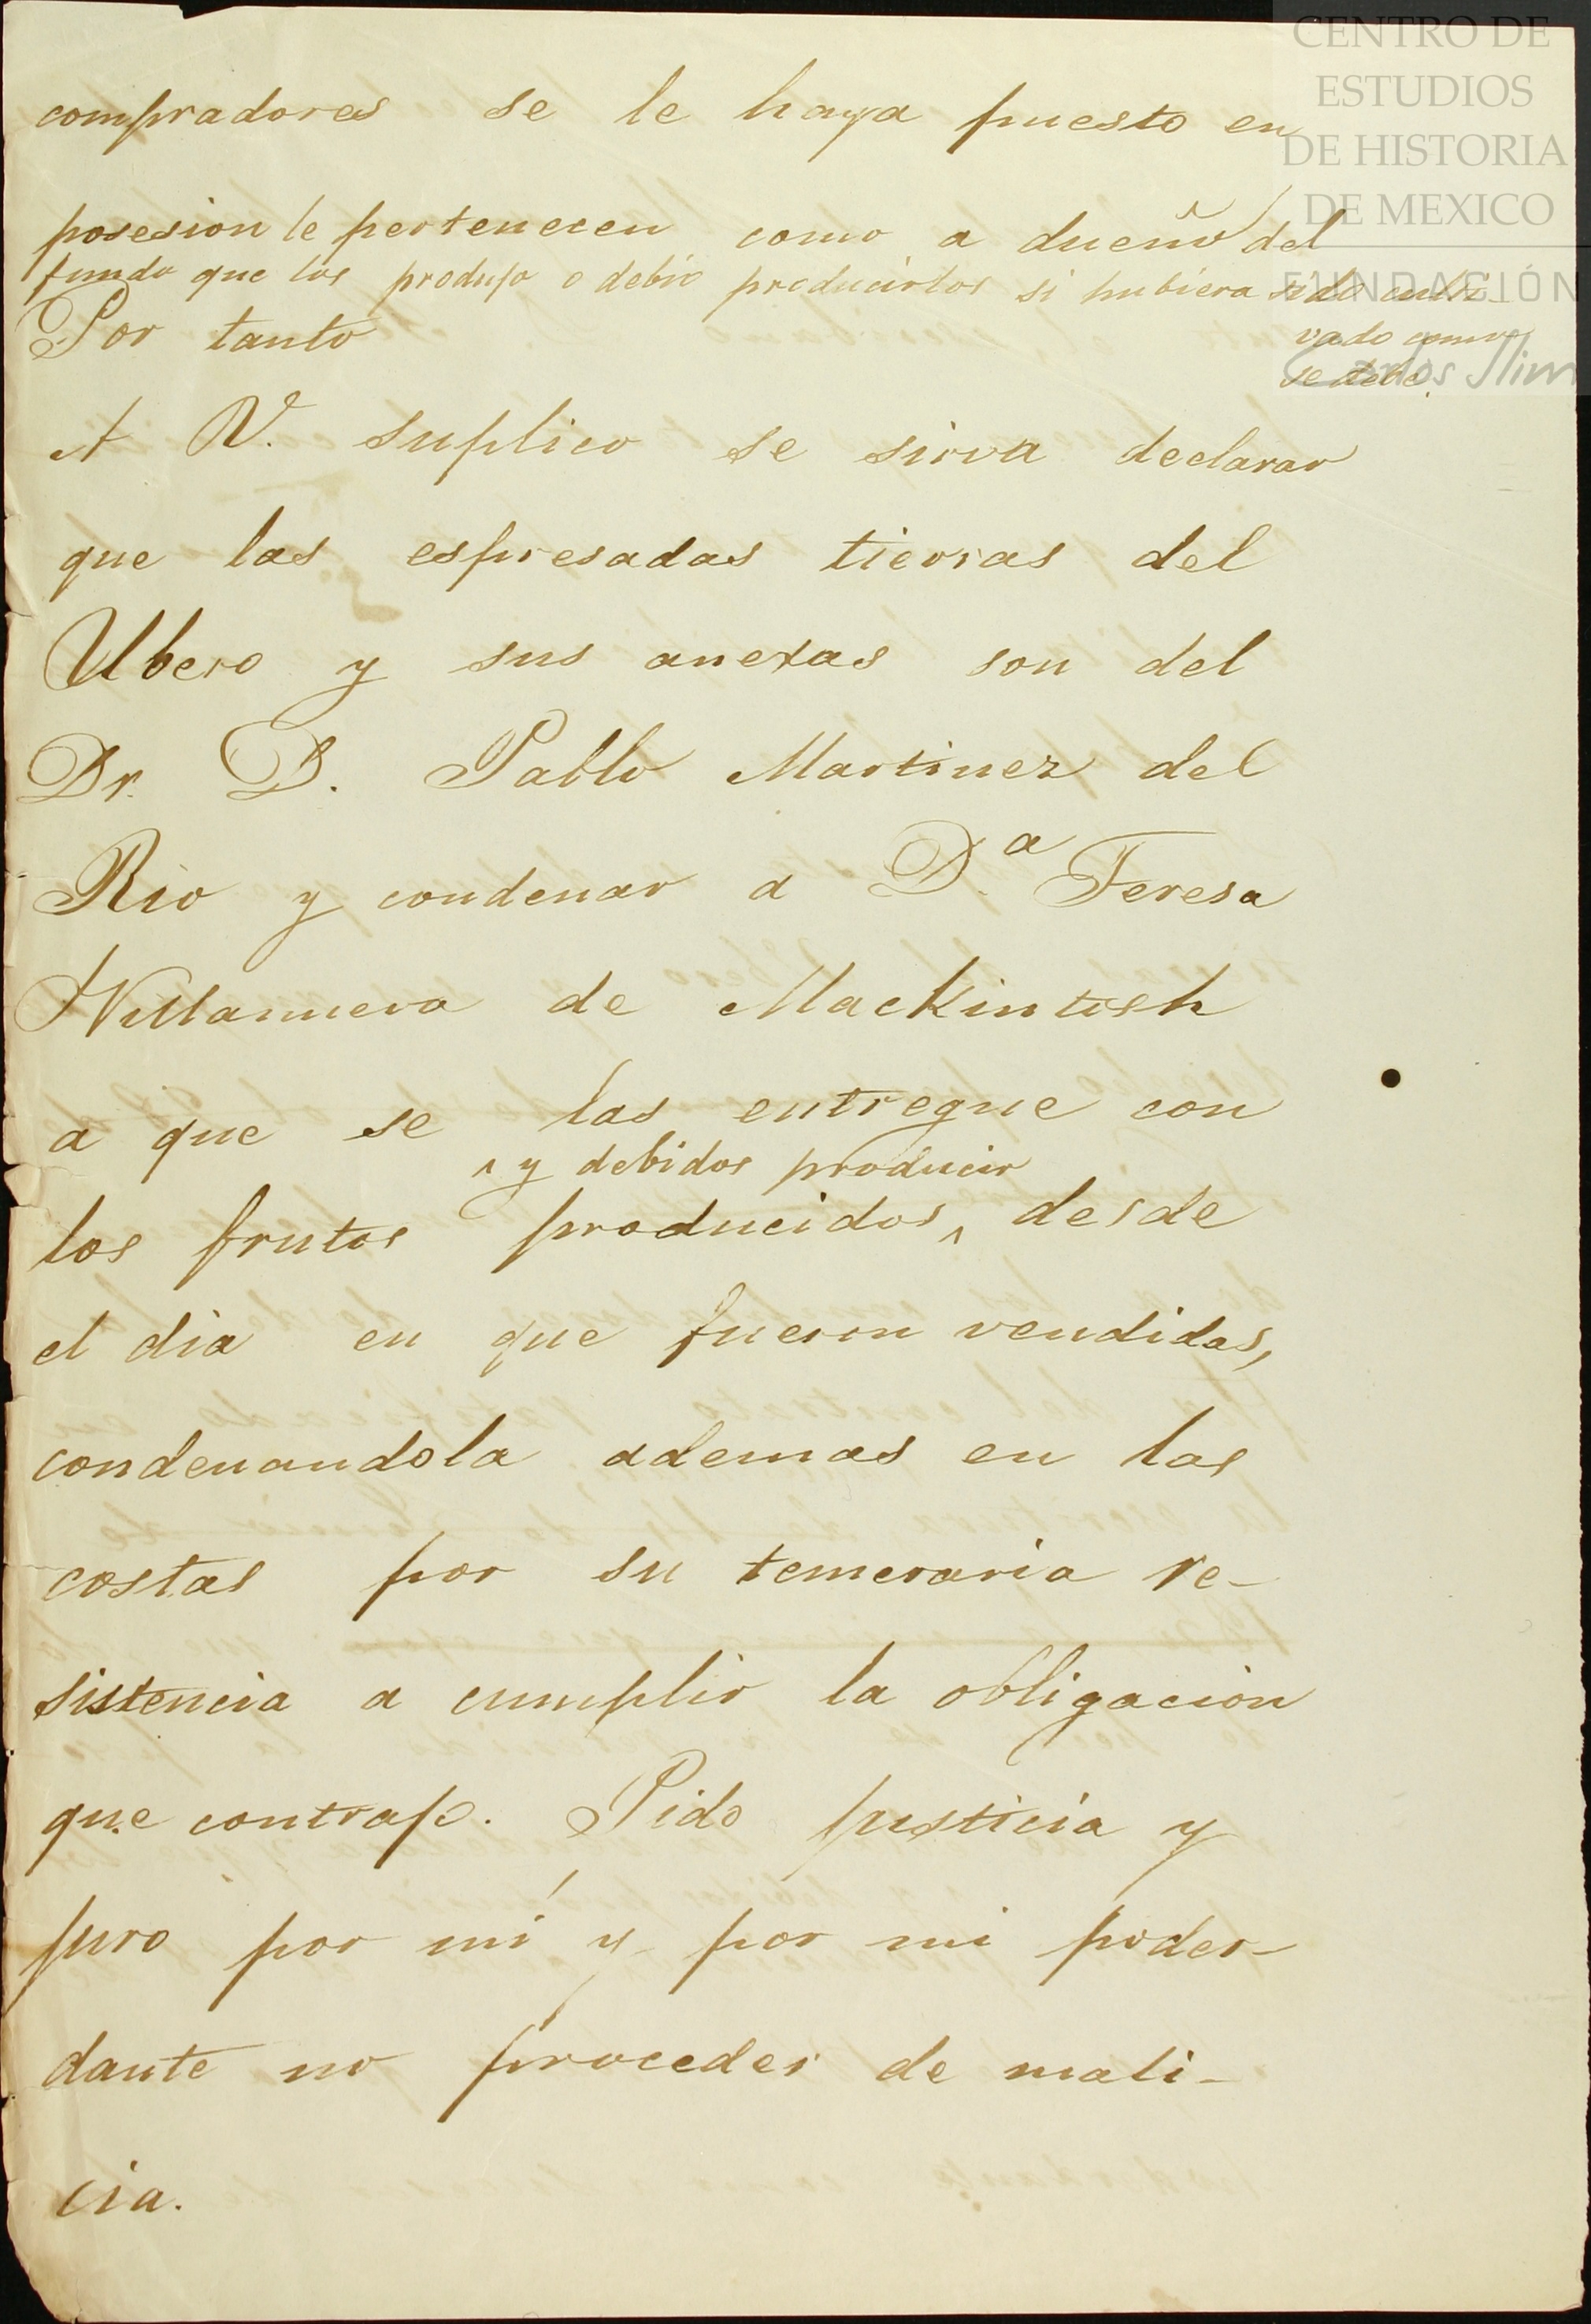 compradores se le haya puesto en
posesion le pertenecen como a dueño del
fundo que los produjo o debio producirlos si hubiera sido culti-
vado como
se debe.
Por tanto
A V. suplico se sirva declarar
que las espresadas tierras del
Ubero y sus anexas son del
Dr. D. Pablo Martinez del
Rio y condenar a D.ª Teresa
Villanueva de Mackintosh
a que se las entregue con
^ y debidos producir
los frutos producidos, ^ desde
el dia en que fueron vendidas,
condenandola ademas en las
costas por su temeraria re-
sistencia a cumplir la obligacion
que contrajo. Pido justicia y
juro por mí y por mi poder-
dante no proceder de mali-
cia.
CENTRO DE
ESTUDIOS
DE HISTORIA
DE MEXICO
FUNDACIÓN
Carlos Slim